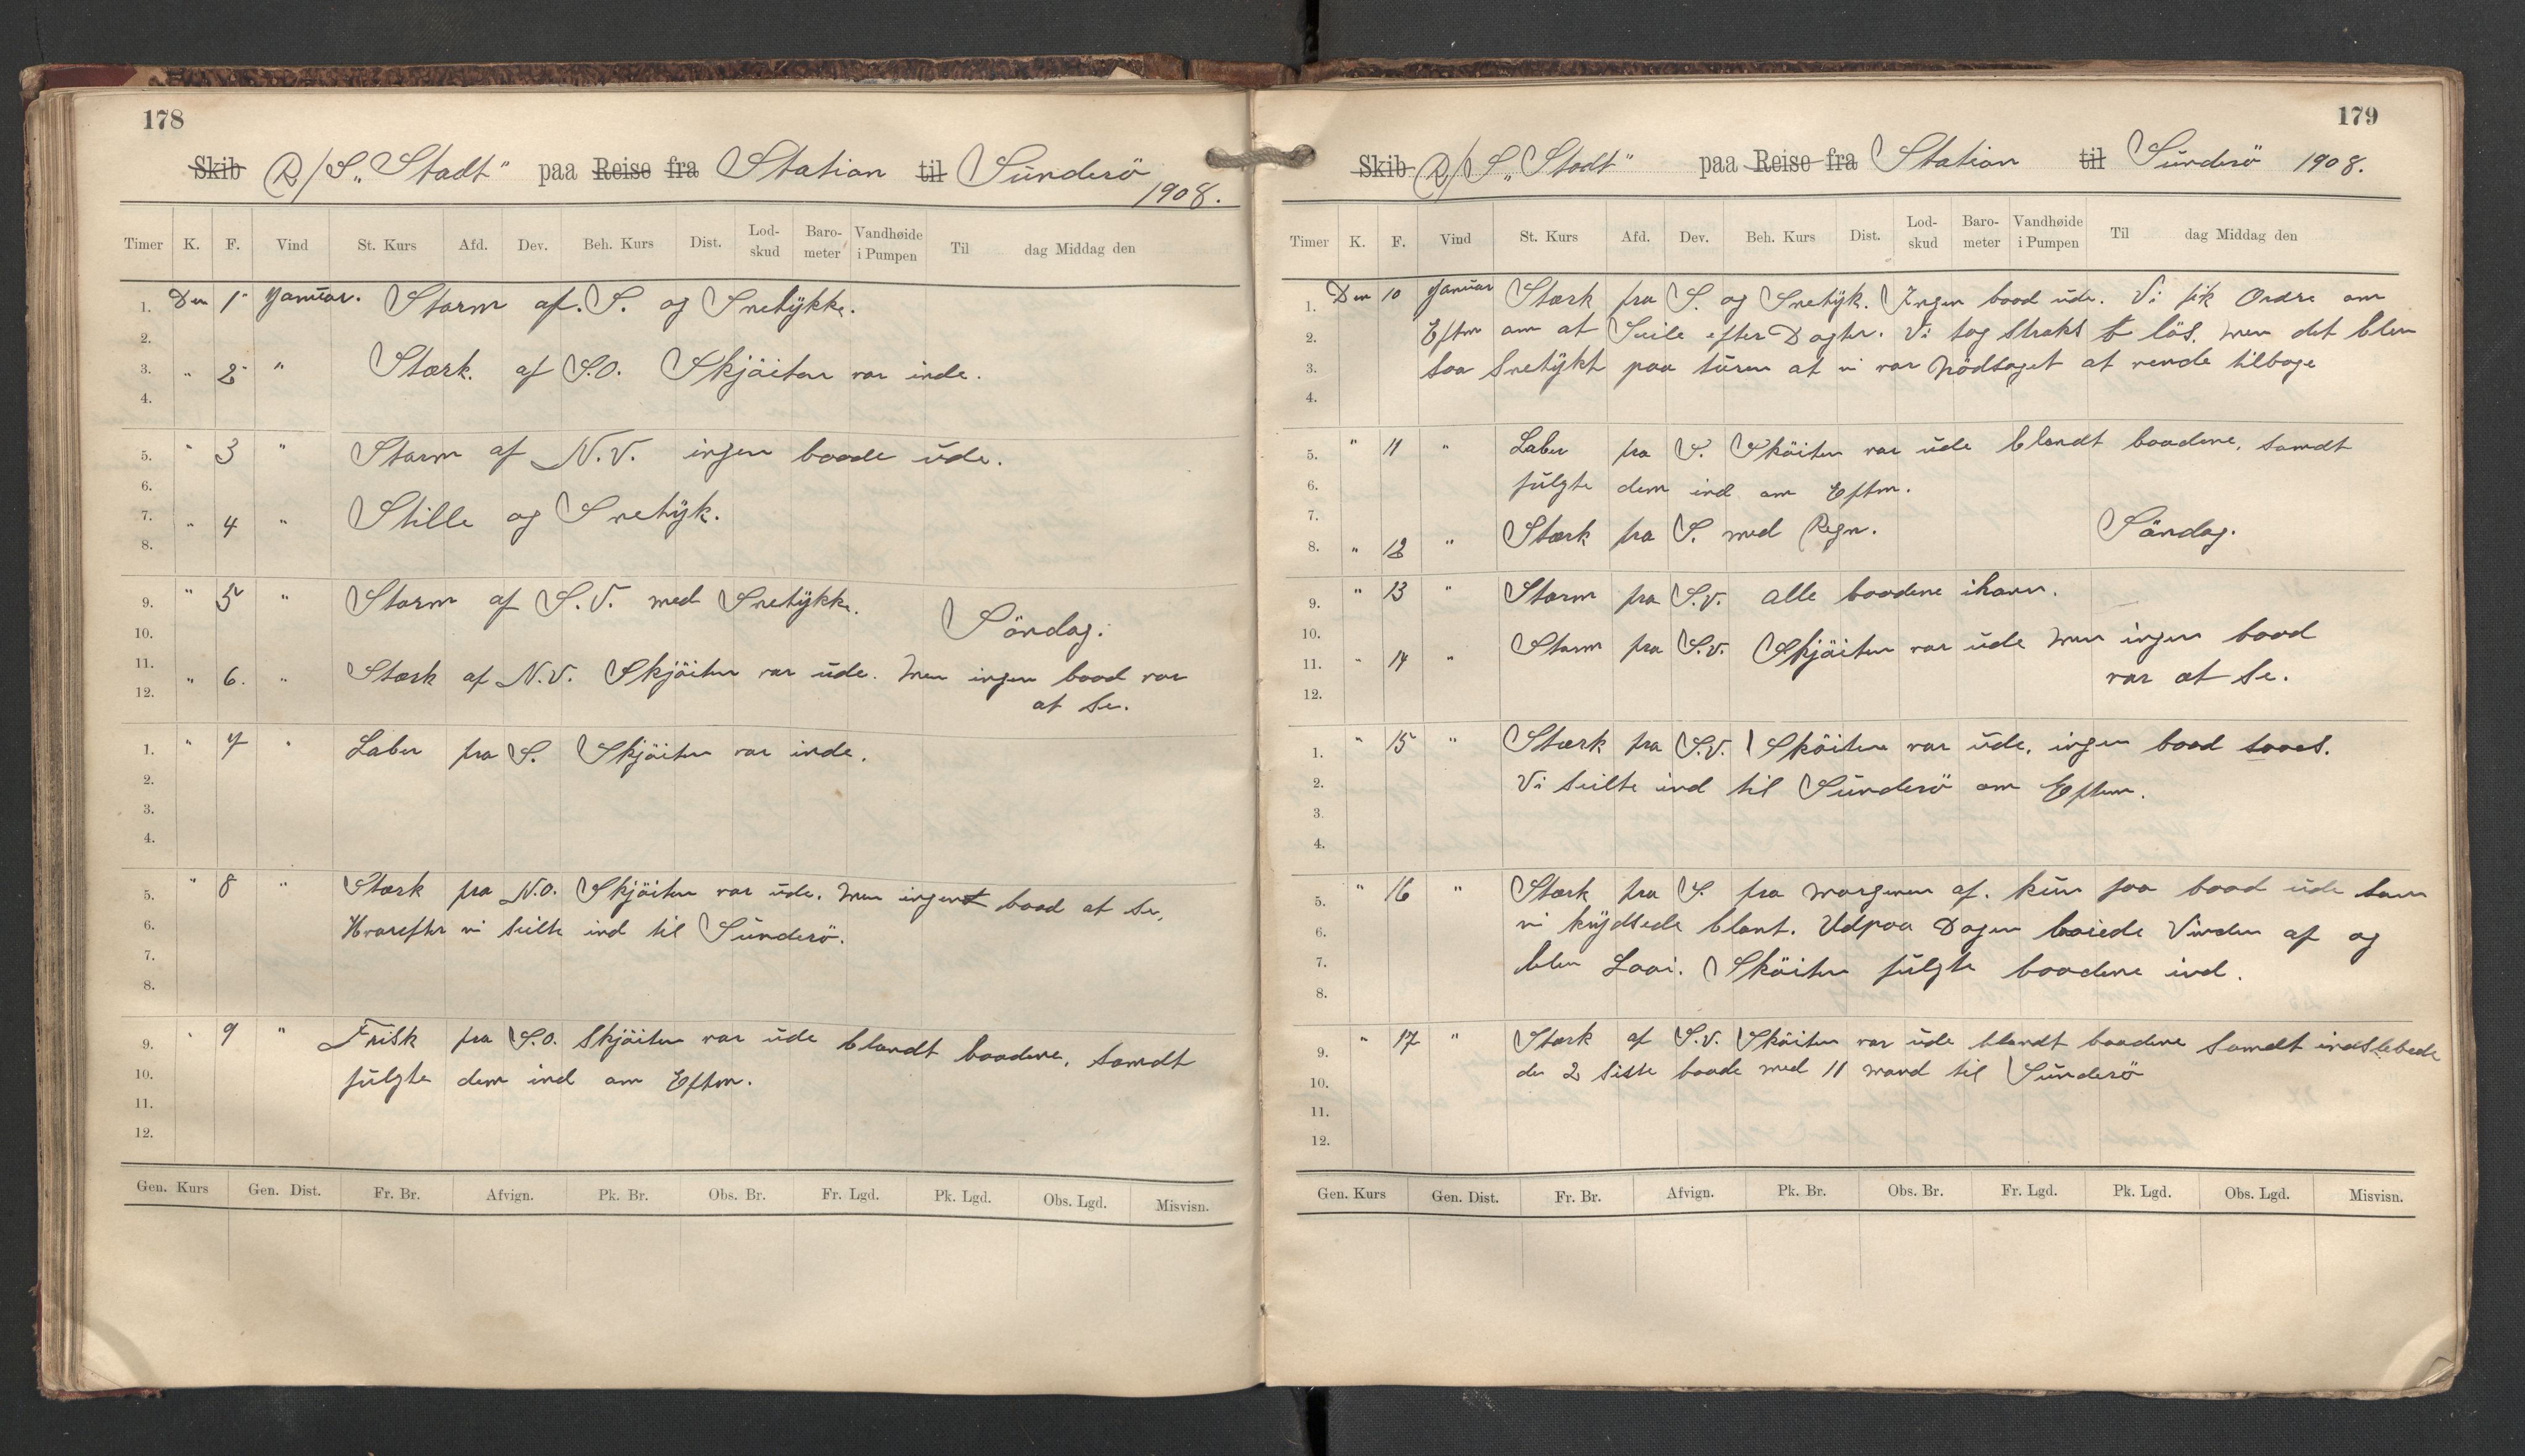 178
Skib R/S „Stadt" paa Reise fra Station til Sünderö
1908.
Timer K. F. Vind St. Kurs Afd. Dev. Beh. Kurs Dist. Lod-skud Baro-meter Vandhøide i Pumpen Til dag Middag den
1. Den 1. Januar. Storm af. S. og Snetÿkke.
2.
3. " 2. " Stærk. af S.O. Skjöiten var inde.
4.
5. " 3 " Storm af N.V. ingen baade ude.
6.
7. " 4 " Stille og Snetÿk.
8.
9. " 5 " Storm af S.V. med Snetÿkke.
10. Söndag.
11. " 6. " Stærk af N.V. Skjöiten var ude. men ingen baad var
12. at se.
1. " 7 " Laber fra S. Skjöiten var inde.
2.
3.
4.
5. " 8 " Stærk fra N.O. Skjöiten var ude. men ingent baad at se,
6. Hvorefter vi seilte ind til Sünderö.
7.
8.
9. " 9 " Frisk fra S.O. Skjöiten var ude blandt baadene, samdt
10. fülgte dem ind om Eftm.
11.
12.
Gen. Kurs Gen. Dist. Fr. Br. Afvign. Pk. Br. Obs. Br. Fr. Lgd. Pk. Lgd. Obs. Lgd. Misvisn.
179
Skib R/S „Stadt" paa Reise fra Station til Sünderö 1908.
Timer K. F. Vind St. Kurs Afd. Dev. Beh. Kurs Dist. Lod-skud Baro-meter Vandhøide i Pumpen Til dag Middag den
1. Den 10 Januar Stærk fra S. og Snetÿk. Ingen baad ude. Vi fik Ordre om
2. Eftm om at Seile efter Dogter. Vi tog straks lös. men det blev
3. saa Snetÿkt paa türen at vi var nödsaget at vende tilbage
4.
5. " 11 " Laber fra S. Sköiten var ude blandt baadene, samdt
6. fülgte dem ind om Eftm.
7.
8. " 12 " Stærk fra S. med Regn. Söndag.
9. " 13 " Storm fra S.V. alle baadene ihavn.
10.
11. " 14 " Storm fra S.V. Skjöiten var ude men ingen baad
12. var at se.
1. " 15 " Stærk fra S.V. Sköiten var ude, ingen baad saaes.
2. Vi seilte ind til Sünderö om Eftm.
3.
4.
5. " 16 " Stærk fra S. fra morgenen af. kün faa baad ude som
6. vi krÿdsede blant. Udpaa Dagen bøiede Vinden af og
7. blev Laai. Sköiten fülgte baadene ind.
8.
9. " 17 " Stærk af S.V. Sköiten var ude blandt baadene samdt indslebede
10. de 2 siste baade med 11 mand til Sünderö
11.
12.
Gen. Kurs Gen. Dist. Fr. Br. Afvign. Pk. Br. Obs. Br. Fr. Lgd. Pk. Lgd. Obs. Lgd. Misvisn.